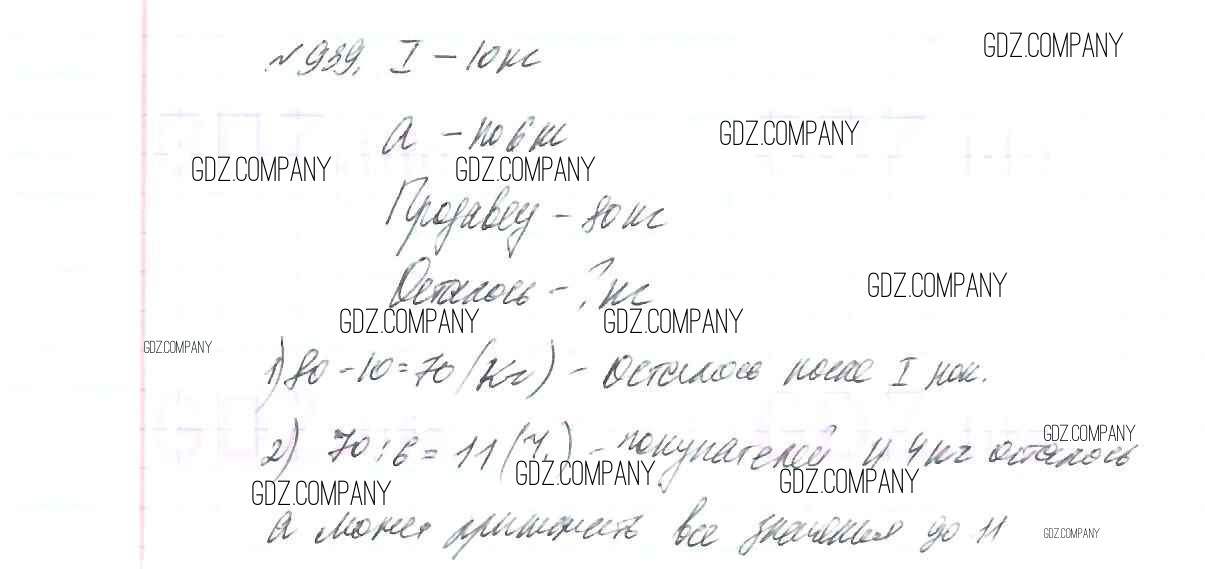 № 939. I – 10 кг
GDZ.COMPANY
а – по 6 кг
GDZ.COMPANY
GDZ.COMPANY GDZ.COMPANY
Продавец – 80 кг
Осталось – ? кг
GDZ.COMPANY
GDZ.COMPANY GDZ.COMPANY
GDZ.COMPANY
1) 80 – 10 = 70 (кг) – осталось после I пок.
GDZ.COMPANY
2) 70 : 6 = 11 (ч.) – покупателей и 4 кг осталось
GDZ.COMPANY GDZ.COMPANY
GDZ.COMPANY
а может принимать все значения до 11
GDZ.COMPANY